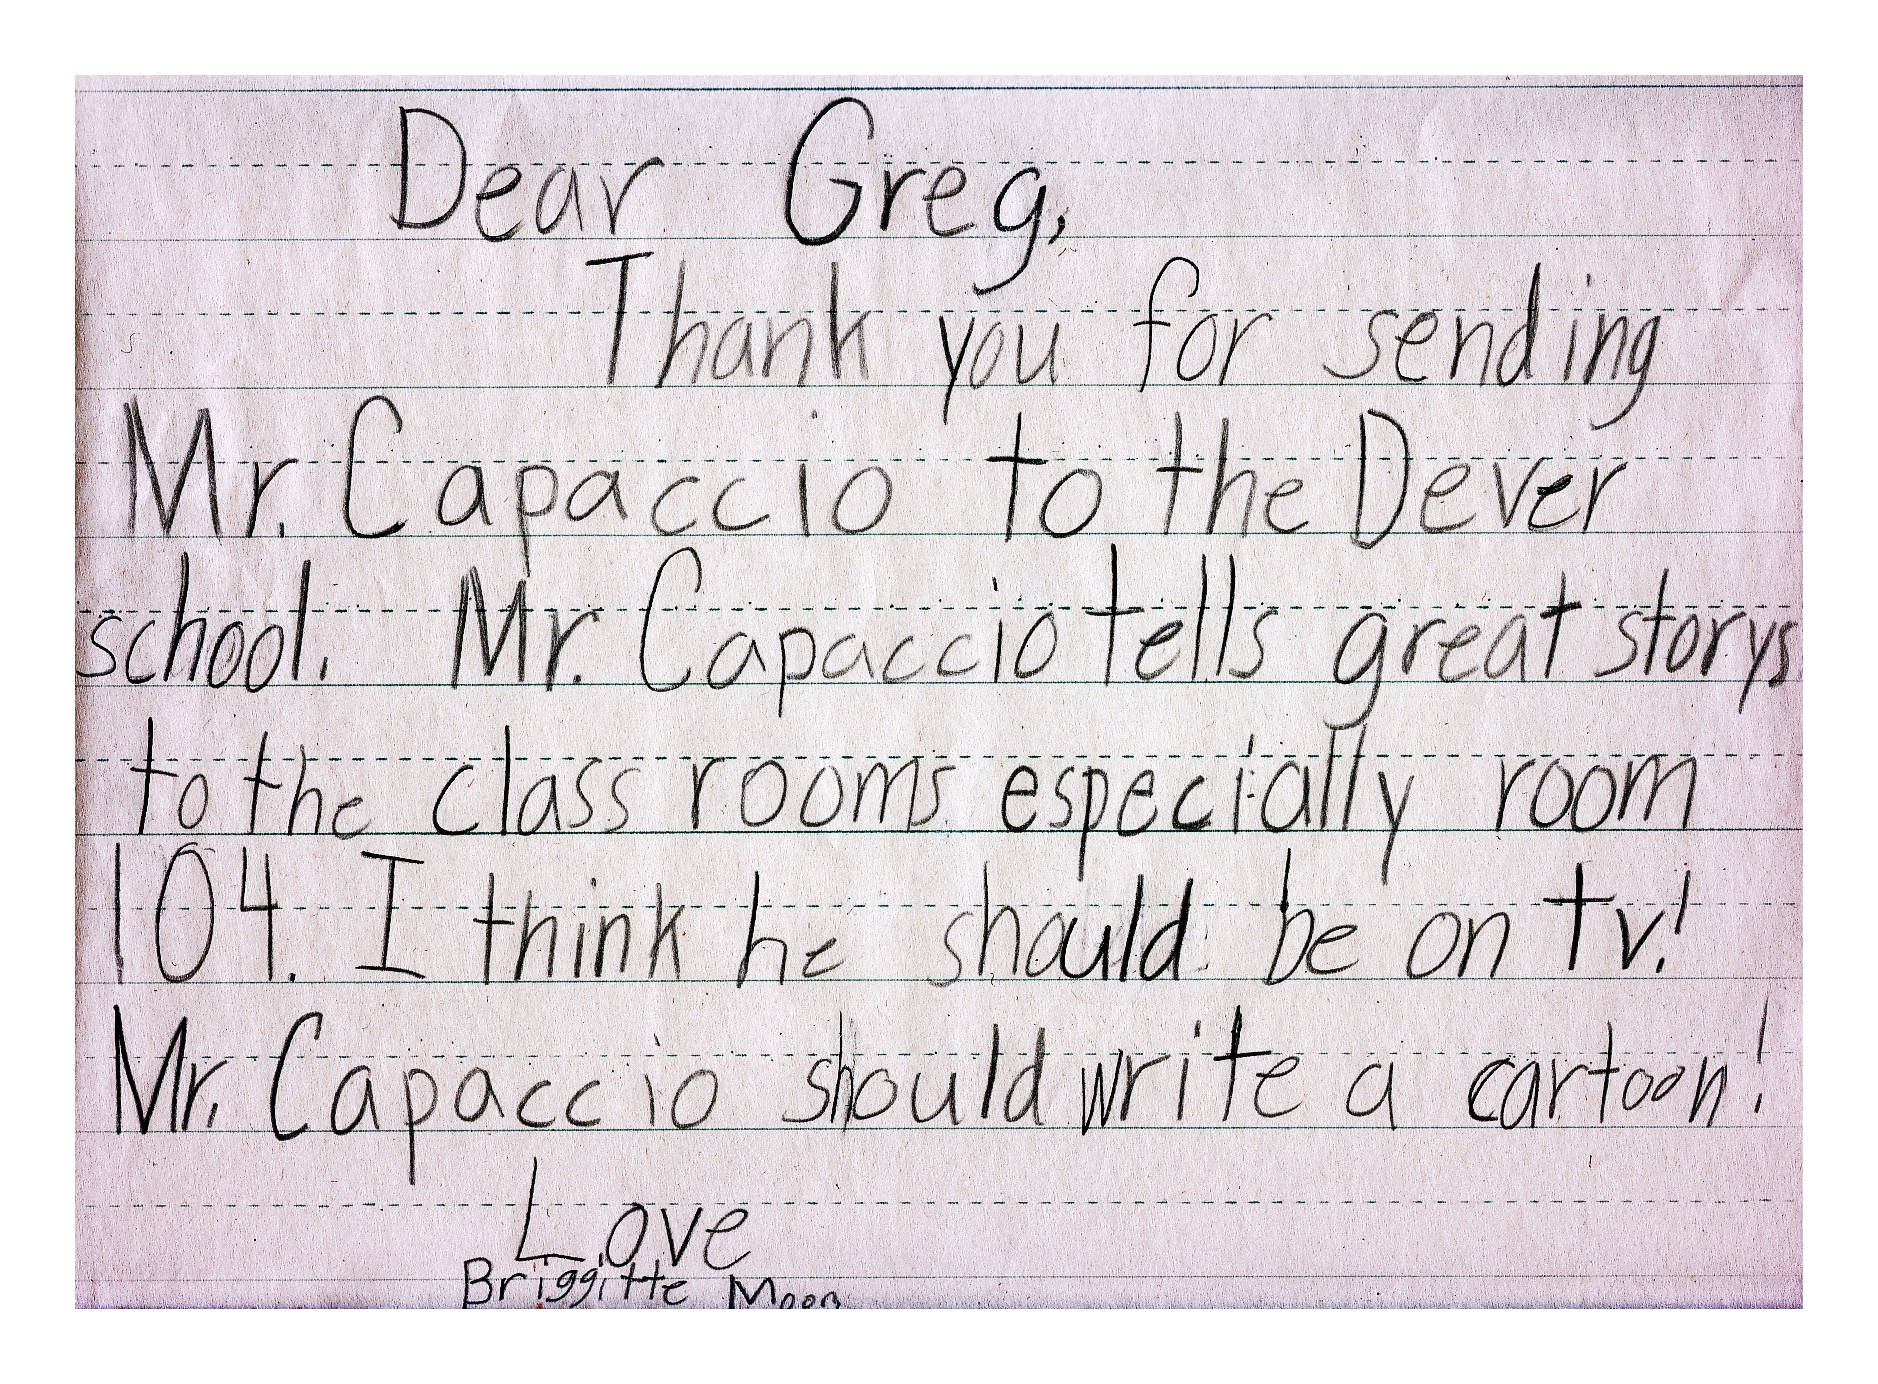 Dear Greg,
Thank you for sending
Mr. Capaccio to the Dever
school. Mr. Capaccio tells great storys
to the class rooms especially room
104. I think he should be on tv!
Mr. Capaccio should write a cartoon!
Love
Briggitte Moon